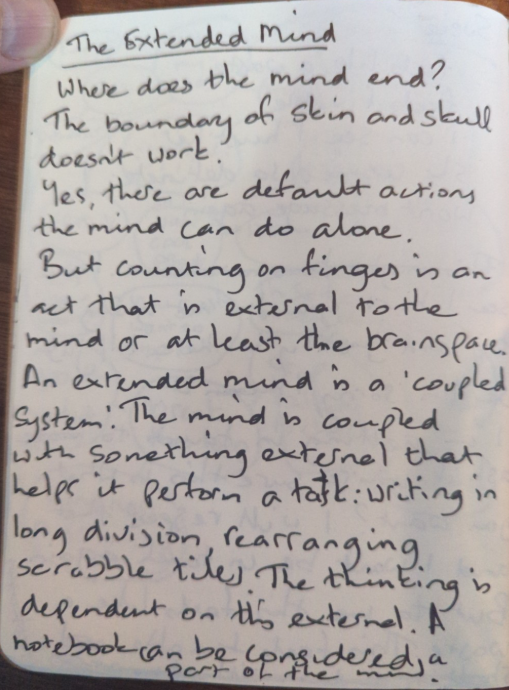 The Extended Mind
Where does the mind end?
The boundary of skin and skull
doesn't work.
Yes, there are default actions
the mind can do alone.
But counting on finges is an
act that is external to the
mind or at least the brainspace.
An extended mind is a 'coupled
system'. The mind is coupled
with something external that
helps it perform a task: writing in
long division, rearranging
scrabble tiles. The thinking is
dependent on this external. A
notebook can be considered a
part of the mind.